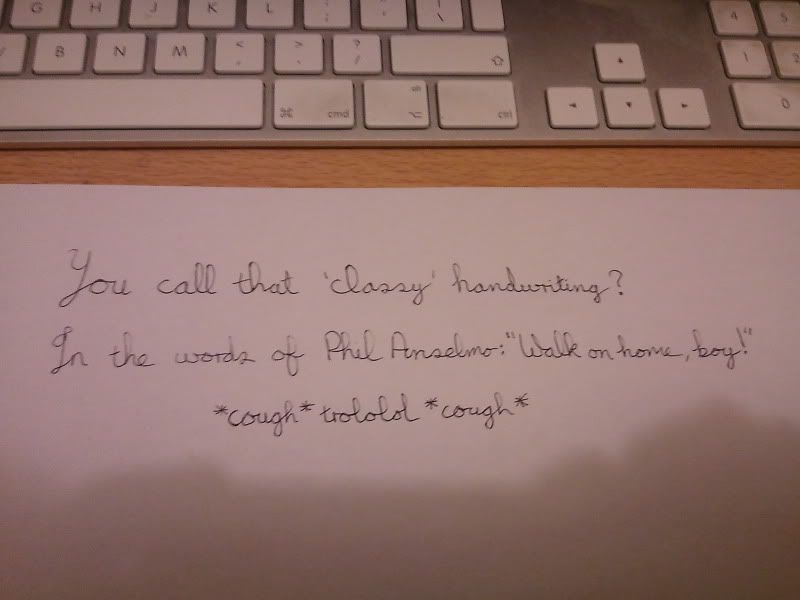 G H J K L : ; " ' | \
B N M < , > . ? /
⌘ cmd alt ⌥ ctrl
4 5
1 2
0
You call that 'classy' handwriting?
In the words of Phil Anselmo: "Walk on home, boy!"
*cough* trololol *cough*